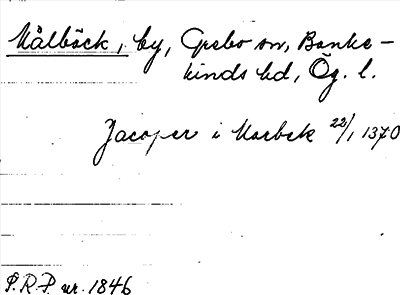 Målbäck, by, Grebo sn, Banke-
kinds hd, Ög. l.
Jacoper i Marbek 22/1 1370
P.R.P. nr. 1846